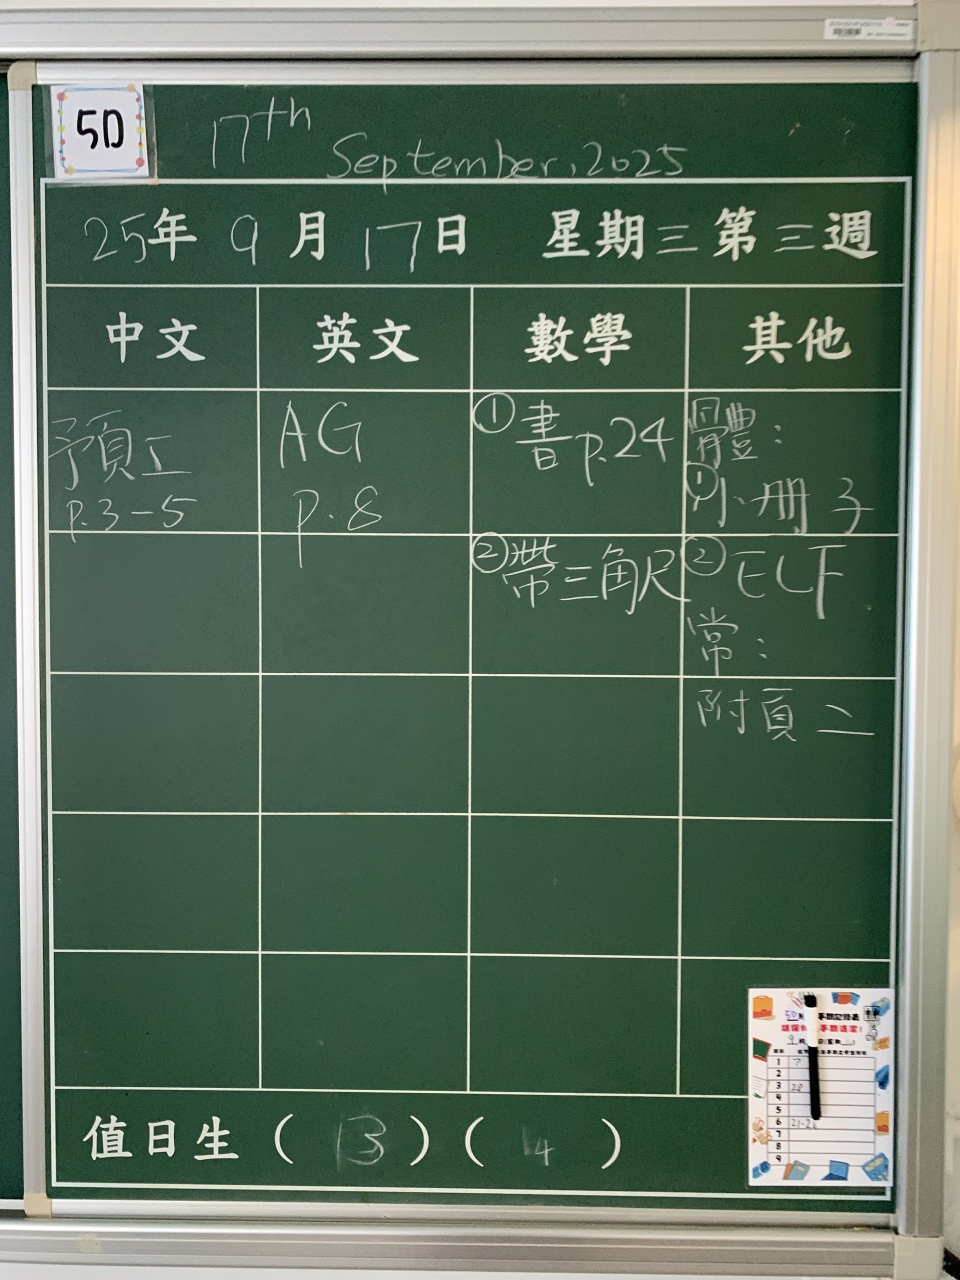 5D
17th
September, 2025
25年 9月 17日 星期三第三週
中文 英文 數學 其他
預工
p.3-5
AG
p.8
① 書p.24
② 帶三角尺
體:
①小冊子
② ELF
常:
附頁二
值日生 ( 13 ) ( 14 )
5D
1 7
2
3 28
4
5
6
7
8
9